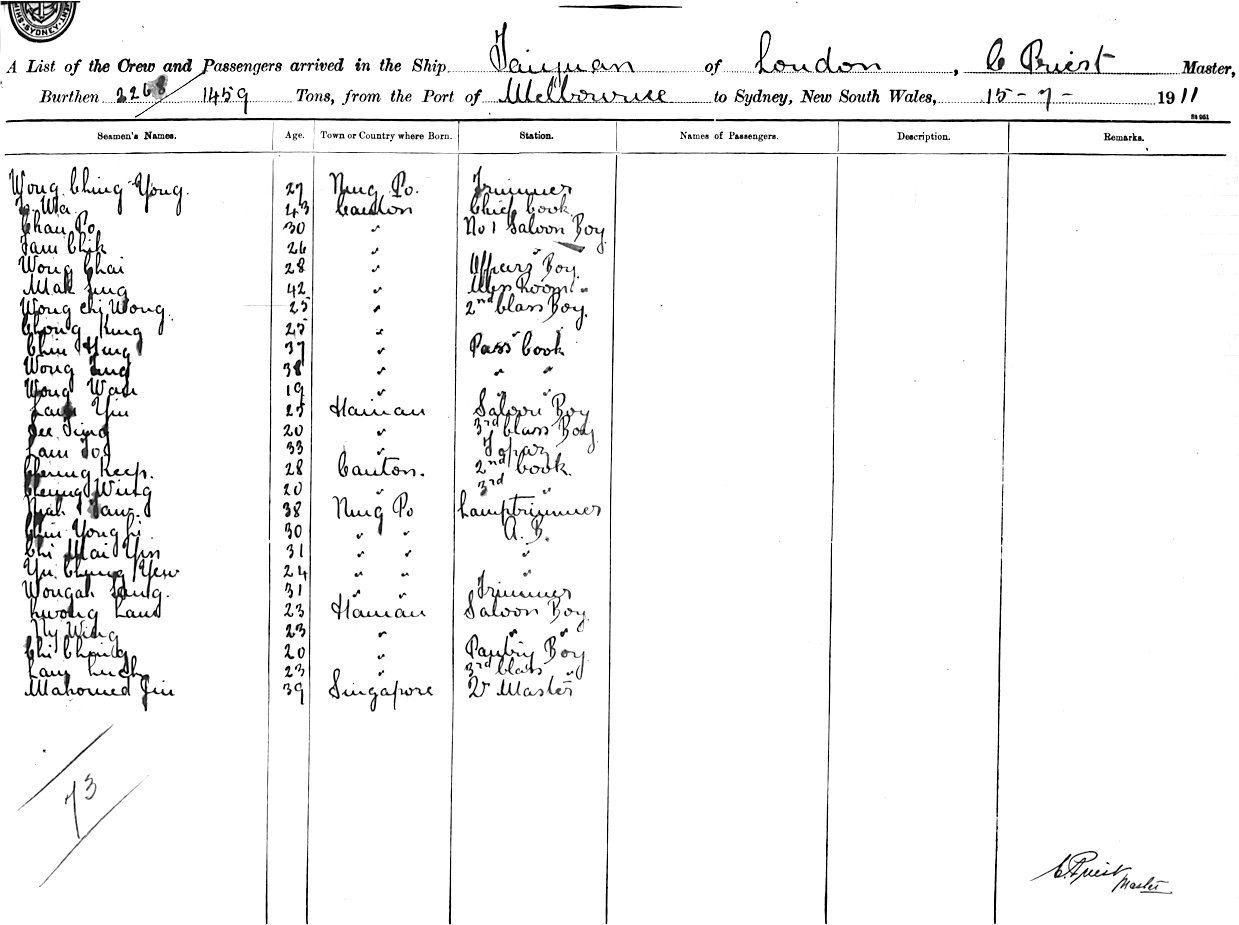 SYDNEY
A List of the Crew and Passengers arrived in the Ship Taiyuan of London, C Priest Master,
Burthen 2268 / 1459 Tons, from the Port of Melbourne to Sydney, New South Wales, 15-7- 1911
Seamen's Names. Age. Town or Country where Born. Station. Names of Passengers. Description. Remarks.
Wong Ching Yong. 27 Ning Po. Trimmer
Wa 43 Canton Chief Cook
Chan Po 30 " No 1 Saloon Boy
Tam Chik 26 " "
Wong Chai 28 " Officers Boy.
Mak Sing 42 " Mess Room "
Wong Chi Wong. 25 " 2nd Class Boy.
Chong Kung 25 " "
Chin Hing 37 " Pass Cook
Wong 38 " " "
Wong Wan 19 " " "
Lam Yin 25 Hainan Saloon Boy
See Sing 20 " 3rd Class Boy
Lam 33 " Topaz
Cheung Keep. 28 Canton. 2nd Cook.
Cheung Wing 20 " 3rd "
38 Ning Po Lamptrimmer
Chin Yong hi 30 " " A.B.
Chi Mai Yun 31 " " "
Yu Chung Yew 24 " " "
Wongah Sang. 31 Trimmer
Kwong Lam 23 Hainan Saloon Boy.
Ny Wing 23 " " "
Chi Ching 20 " Pantry Boy
Lam 23 " 3rd Class "
Mahomed Jin 39 Singapore Qr Master
73
C. Priest
Master